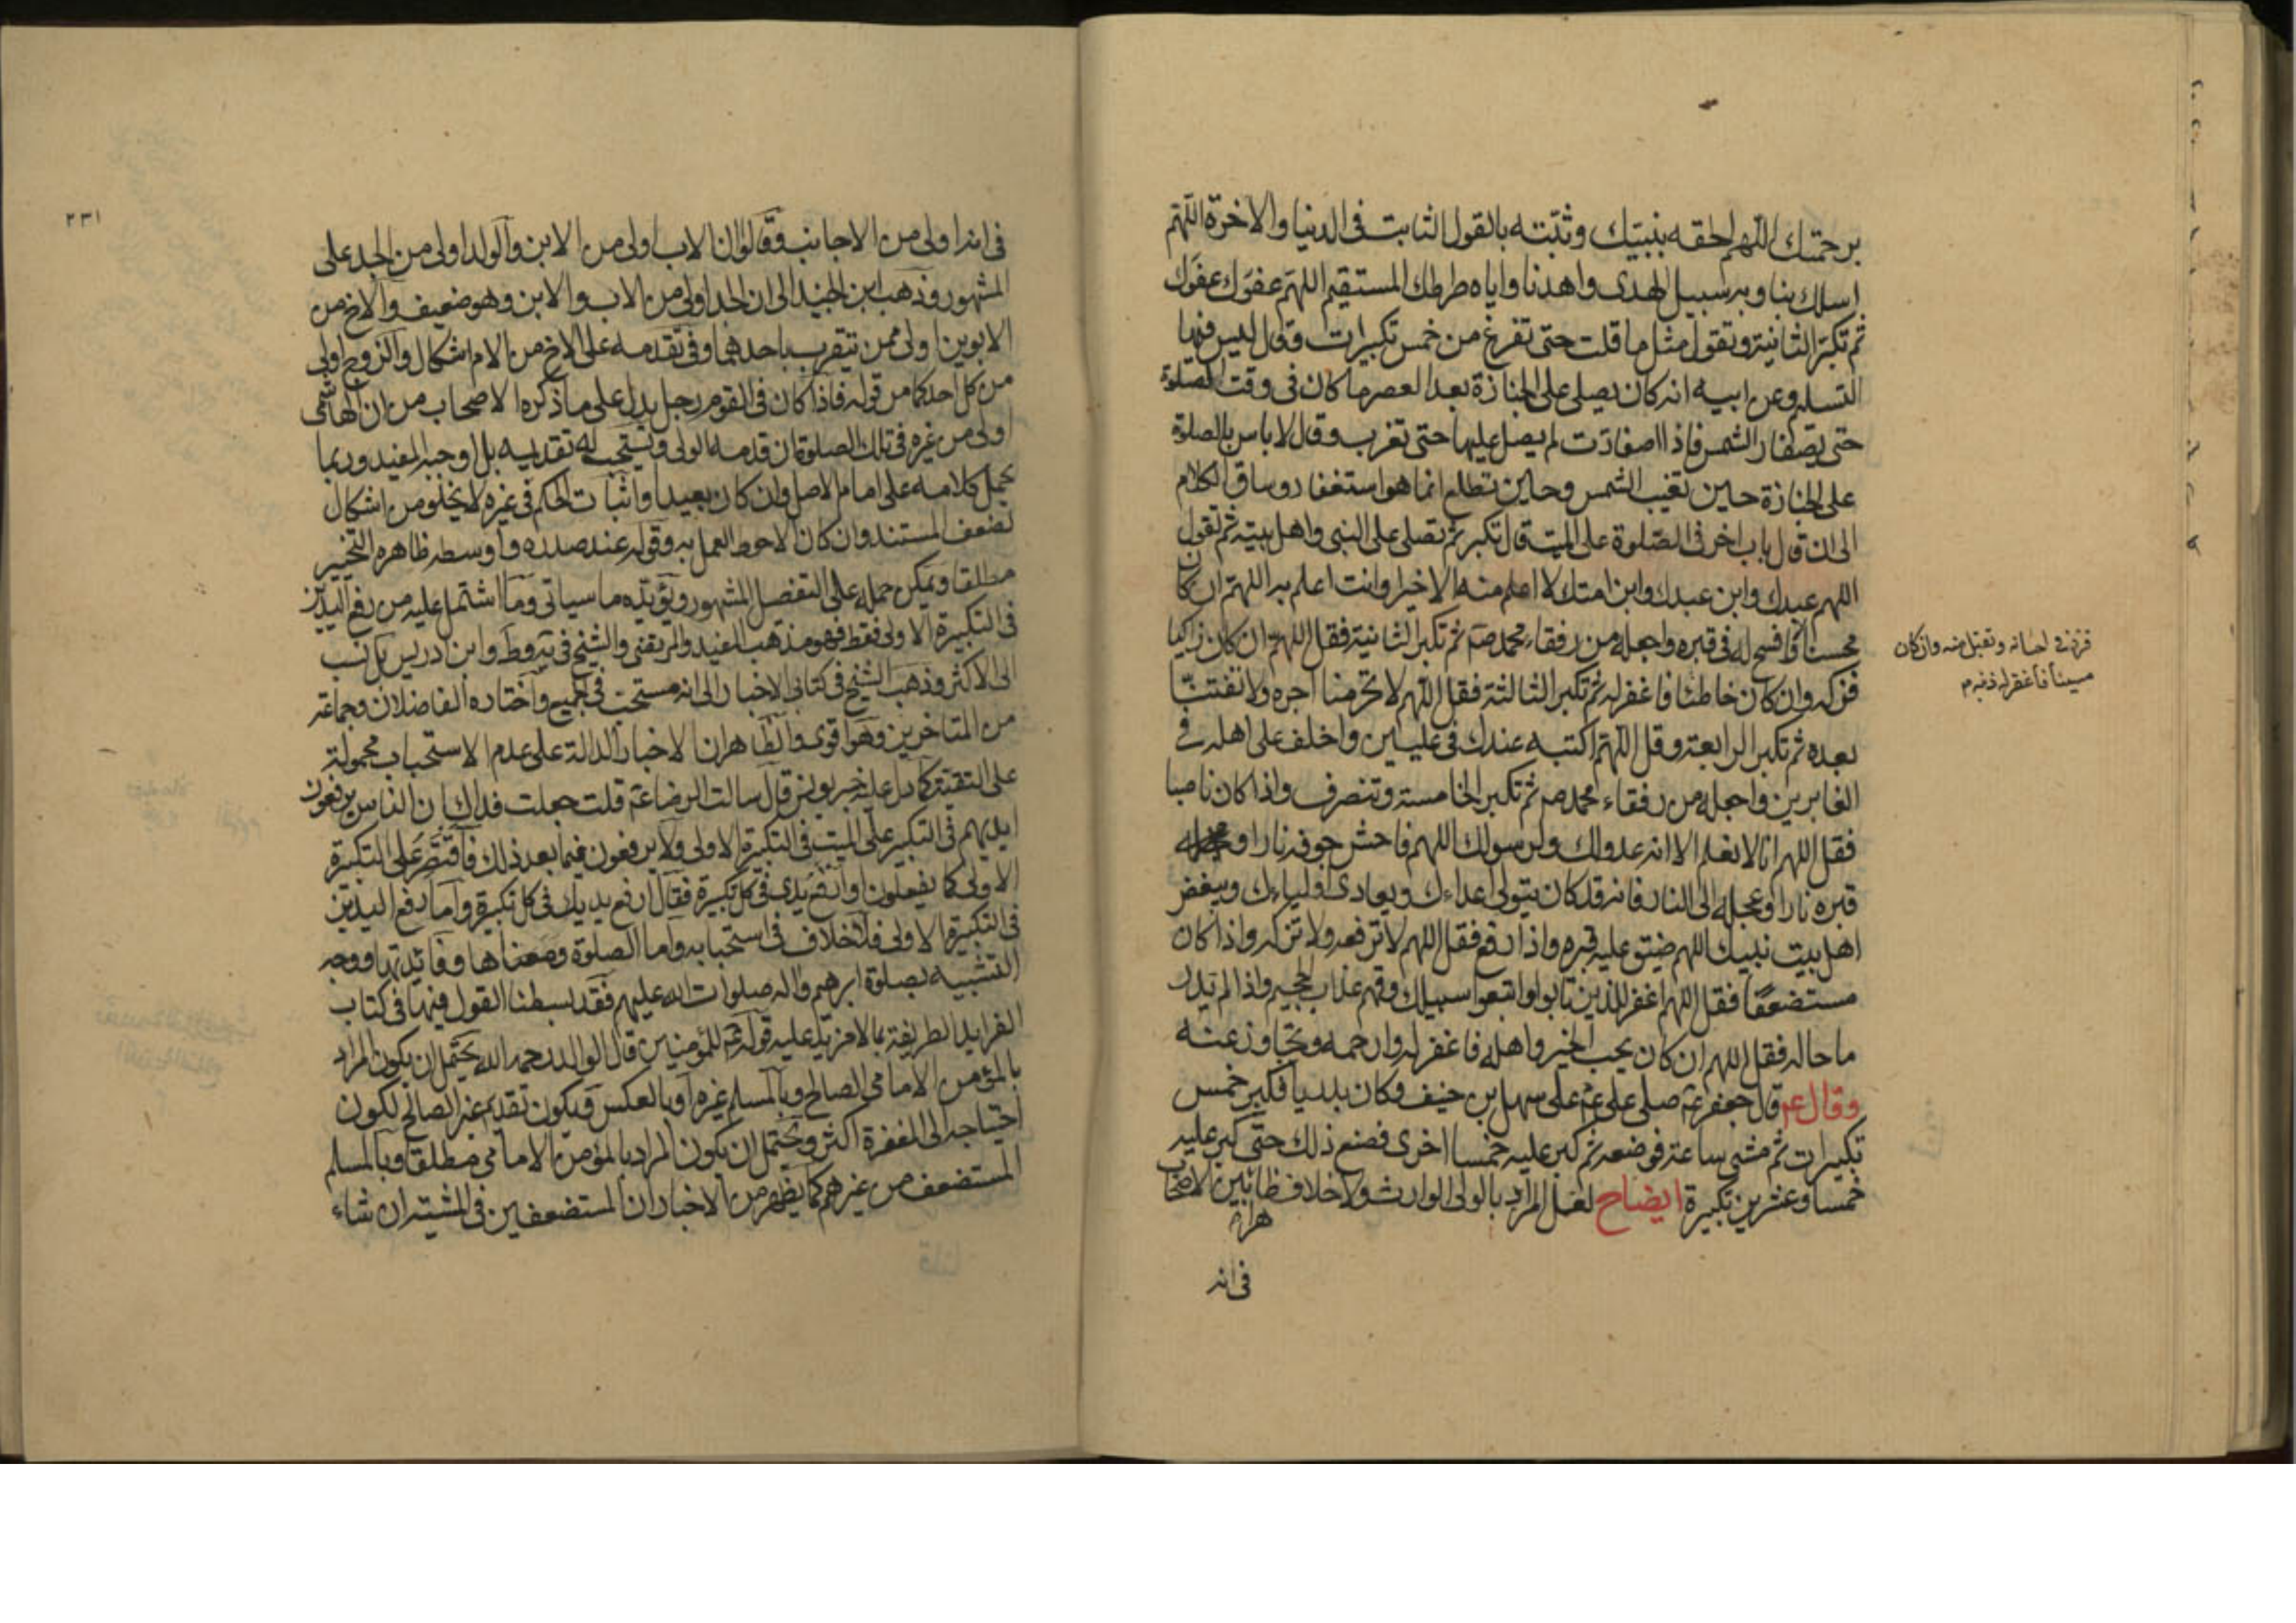 برحمتك اللهم الحقه بنبيك وثبته بالقول الثابت فى الدنيا والاخرة اللهم
اسلك بنا وبه سبيل الهدى واهدنا واياه صراطك المستقيم اللهم عفوك عفوك
ثم تكبر الثانية وتقول مثل ما قلت حتى تفرغ من خمس تكبيرات وقال ليس فيها
التسليم وعن ابيه انه كان يصلى على الجنازة بعد العصر ما كان فى وقت الصلوة
حتى يصفار الشمس فاذا اصفارت لم يصل عليها حتى تغرب وقال لا باس بالصلوة
على الجنازة حين تغيب الشمس وحين تطلع انما هو استغفار وساق الكلام
الى ان قال باب اخر فى الصلوة على الميت قال تكبر ثم تصلى على النبى واهل بيته ثم تقول
اللهم عبدك وابن عبدك وابن امتك لا اعلم منه الا خيرا وانت اعلم به اللهم ان كان
محسنا فافسح له فى قبره واجعله من رفقاء محمد ص ثم تكبر الثانية فقل اللهم ان كان زاكيا
فزد فى احسانه وتقبل منه وان كان
مسيئا فاغفر له ذنبه م
فزكه وان كان خاطئا فاغفر له ثم تكبر الثالثة فقل اللهم لا تحرمنا اجره ولا تفتنا
بعده ثم تكبر الرابعة وقل اللهم اكتبه عندك فى عليين واخلف على اهله فى
الغابرين واجعله من رفقاء محمد ص ثم تكبر الخامسة وتنصرف واذا كان ناصبا
فقل اللهم انا لا نعلم الا انه عدو لك ولرسولك اللهم فاحش جوفه نارا و
قبره نارا وعجله الى النار فانه قد كان يتولى اعداءك ويعادى اولياءك ويبغض
اهل بيت نبيك اللهم ضيق عليه قبره واذا رفع فقل اللهم لا ترفعه ولا تزكه واذا كان
مستضعفا فقل اللهم اغفر للذين تابوا واتبعوا سبيلك وقهم عذاب الجحيم واذا لم تدر
ما حاله فقل اللهم ان كان يحب الخير واهله فاغفر له وارحمه وتجاوز عنه
وقال ع قال جعفر ع صلى على ع على سهل بن حنيف وكان بدريا فكبر خمس
تكبيرات ثم مشى ساعة فوضعه ثم كبر عليه خمسا اخرى فصنع ذلك حتى كبر عليه
خمسا وعشرين تكبيرة ايضاح لعل المراد بالولى الوارث ولا خلاف ظا بين الاصحاب
هرا
فى انه
٢٣١
فى انه اولى من الاجانب وقالوا ان الاب اولى من الابن والولد اولى من الجد على
المشهور وذهب ابن الجنيد الى ان الجد اولى من الاب والابن وهو ضعيف والاخ من
الابوين اولى ممن يتقرب باحدهما وفى تقدمه على الاخ من الام اشكال والزوج اولى
من كل احد كما مر قوله فاذا كان فى القوم رجل يدل على ما ذكره الاصحاب من ان الهاشمى
اولى من غيره فى تلك الصلوة ان قدمه الولى ويستحب له تقديمه بل اوجبه المفيد وربما
يحمل كلامه على امام الاصل وان كان بعيدا واثبات الحكم فى غيره لا يخلو من اشكال
لضعف المستند وان كان الاحوط العمل به وقوله عند صدره واوسطه ظاهره التخيير
مطلقا ويمكن حمله على التفصيل المشهور ويؤيده ما سياتى وما اشتمل عليه من رفع اليدين
فى التكبيرة الاولى فقط فهو مذهب المفيد والمرتضى والشيخ فى يه وط وابن ادريس بل نسب
الى الاكثر وذهب الشيخ فى كتابى الاخبار الى انه مستحب فى الجميع واختاره الفاضلان وجماعة
من المتاخرين وهو اقوى والظاهر ان الاخبار الدالة على عدم الاستحباب محمولة
على التقية كما يدل عليه خبر يونس قال سالت الرضا ع قلت جعلت فداك ان الناس يرفعون
ايديهم فى التكبير على الميت فى التكبيرة الاولى ولا يرفعون فيما بعد ذلك فاقتصر على التكبيرة
الاولى كما يفعلون او ارفع يدى فى كل تكبيرة فقال ارفع يديك فى كل تكبيرة واما رفع اليدين
فى التكبيرة الاولى فلا خلاف فى استحبابه واما الصلوة ومعناها وفائدتها ووجه
التشبيه بصلوة ابرهيم واله صلوات الله عليهم فقد بسطنا القول فيها فى كتاب
الفرايد الطريفة بما لا مزيد عليه قوله ع للمؤمنين قال الوالد رحمه الله يحتمل ان يكون المراد
بالمؤمن الامامى الصالح وبالمسلم غيره او بالعكس ويكون تقديم غير الصالح لكون
احتياجه الى المغفرة اكثر ويحتمل ان يكون المراد بالمؤمن الامامى مطلقا وبالمسلم
المستضعف من غيرهم كما يظهر من الاخبار ان المستضعفين فى المشية ان شاء